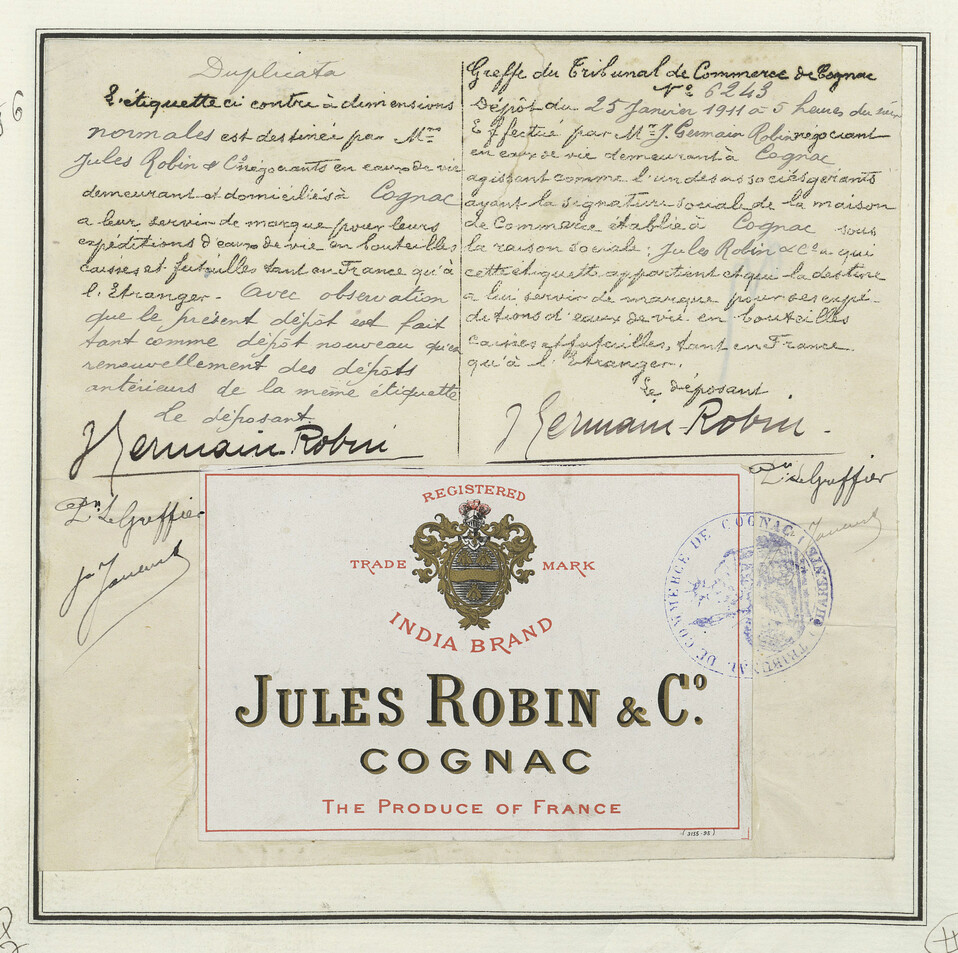 Duplicata
L'étiquette ci contre à dimensions
normales est destinée par Mrs
Jules Robin & Co négociants en eaux de vie
demeurant et domiciliés à Cognac
a leur servir de marque pour leurs
expéditions d'eaux de vie en bouteilles
caisses et futailles tant en France qu'à
l'Etranger. Avec observation
que le présent dépôt est fait
tant comme dépôt nouveau qu'en
renouvellement des dépôts
antérieurs de la même étiquette
Le déposant
J Germain Robin
Le Greffier
Greffe du Tribunal de Commerce de Cognac
No 6243
Dépôt du 25 Janvier 1911 à 5 heures du soir
Effectué par Mr J. Germain Robin négociant
en eaux de vie demeurant à Cognac
agissant comme l'un des associés gérants
ayant la signature social de la maison
de Commerce établie à Cognac sous
la raison sociale: Jules Robin & Co a qui
cette étiquette appartient et qui la destine
a lui servir de marque pour ses expé-
ditions d'eaux de vie en bouteilles
caisses et futailles, tant en France
qu'à l'Etranger.
Le déposant
J Germain Robin
Le Greffier
REGISTERED
TRADE MARK
INDIA BRAND
JULES ROBIN & Co.
COGNAC
THE PRODUCE OF FRANCE
(3155-95)
TRIBUNAL DE COMMERCE DE COGNAC (CHARENTE)